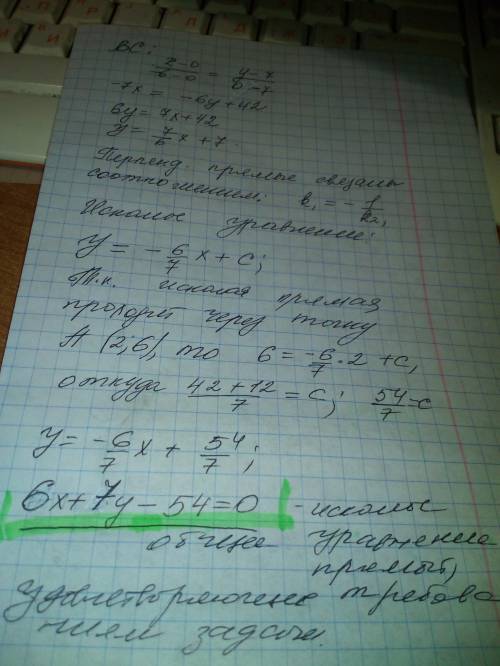 BC:
x-0/6-0 = y-7/0-7
-7x = -6y+42
6y = 7x+42
y = 7/6 x + 7.
Перпенд. прямые связаны
соотношением: k₁ = - 1/k₂,
Искомые уравнение:
y = - 6/7 x + c;
Т.к. искомая прямая
проходит через точку
A (2;6), то 6 = -6/7 · 2 + c,
откуда 42+12/7 = c; 54/7 = c
y = -6/7 x + 54/7;
6x+7y-54=0 - искомые
общие уравнение
прямой,
удовлетворяющие требова
ниям задачи.